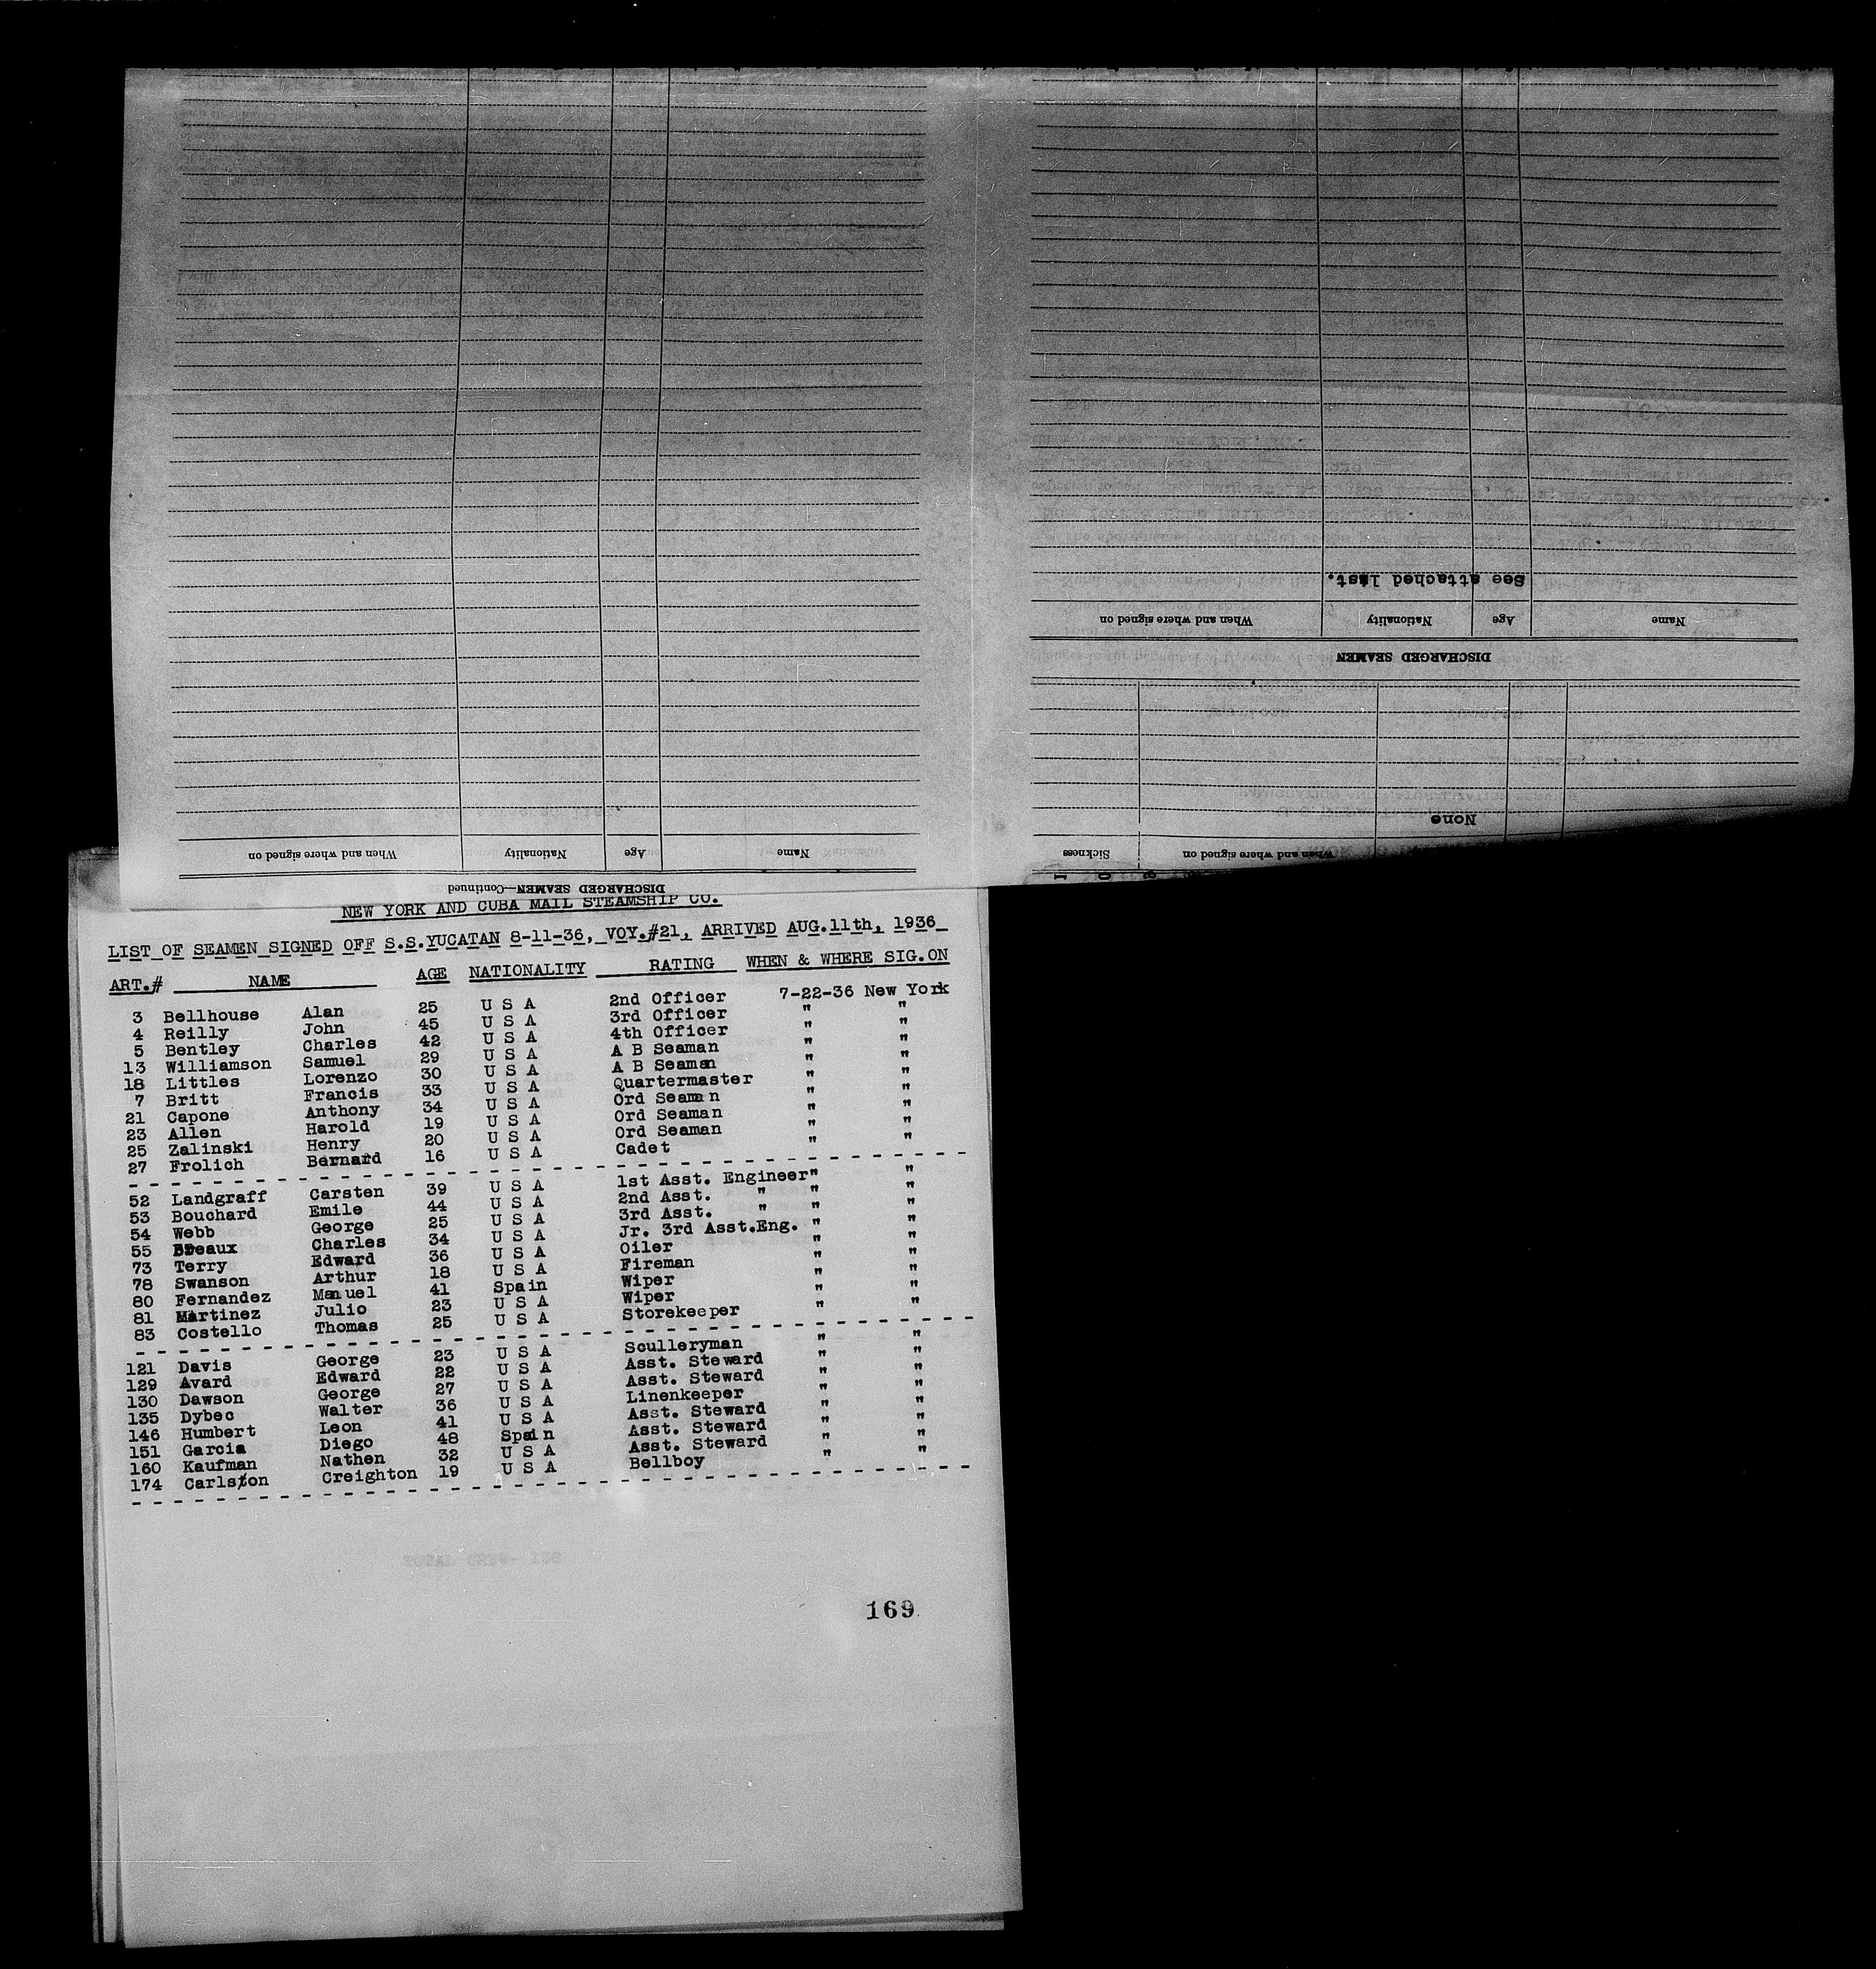 Sickness When and where signed on
None
DISCHARGED SEAMEN
Name Age Nationality When and where signed on
See attached list.
DISCHARGED SEAMEN—Continued
Name Age Nationality When and where signed on
NEW YORK AND CUBA MAIL STEAMSHIP CO.
LIST OF SEAMEN SIGNED OFF S.S.YUCATAN 8-11-36, VOY.#21, ARRIVED AUG.11th, 1936
ART.# NAME AGE NATIONALITY RATING WHEN & WHERE SIG.ON
3 Bellhouse Alan 25 U S A 2nd Officer 7-22-36 New York
4 Reilly John 45 U S A 3rd Officer " "
5 Bentley Charles 42 U S A 4th Officer " "
13 Williamson Samuel 29 U S A A B Seaman " "
18 Littles Lorenzo 30 U S A A B Seaman " "
7 Britt Francis 33 U S A Quartermaster " "
21 Capone Anthony 34 U S A Ord Seaman " "
23 Allen Harold 19 U S A Ord Seaman " "
25 Zalinski Henry 20 U S A Ord Seaman " "
27 Frolich Bernard 16 U S A Cadet " "
52 Landgraff Carsten 39 U S A 1st Asst. Engineer " "
53 Bouchard Emile 44 U S A 2nd Asst. " " "
54 Webb George 25 U S A 3rd Asst. " " "
55 Breaux Charles 34 U S A Jr. 3rd Asst.Eng. " "
73 Terry Edward 36 U S A Oiler " "
78 Swanson Arthur 18 U S A Fireman " "
80 Fernandez Manuel 41 Spain Wiper " "
81 Martinez Julio 23 U S A Wiper " "
83 Costello Thomas 25 U S A Storekeeper " "
121 Davis George 23 U S A Sculleryman " "
129 Avard Edward 22 U S A Asst. Steward " "
130 Dawson George 27 U S A Asst. Steward " "
135 Dybec Walter 36 U S A Linenkeeper " "
146 Humbert Leon 41 U S A Asst. Steward " "
151 Garcia Diego 48 Spain Asst. Steward " "
160 Kaufman Nathen 32 U S A Asst. Steward " "
174 Carlson Creighton 19 U S A Bellboy " "
TOTAL CREW- 138
169